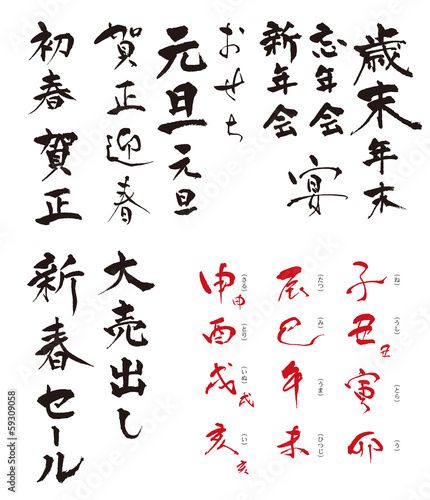 歳末年末
忘年会
新年会
宴
おせち
元旦元旦
賀正迎春
初春賀正
子(ね)
丑(うし)丑
寅(とら)
卯(う)
辰(たつ)
巳(み)
午(うま)
未(ひつじ)
申(さる)申
酉(とり)
戌(いぬ)戌
亥(い)亥
大売出し
新春セール
59309058